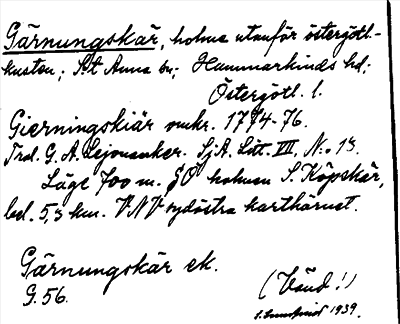 Gärnungskär, holme utanför östergötl.-
kusten; S:t Anna sn; Hammarkinds hd;
Östergötl. l.
Gierningskiär omkr. 1774-76.
Trol. G. A. Lejonanker. SjA. Litt. VII, N:o 13.
Läge 700 m. SO holmen S. Köpskär,
bel. 5,3 km. VNV sydöstra karthörnet.
Gärnungskär ek.
G. 56.
(Vänd!)
1939.